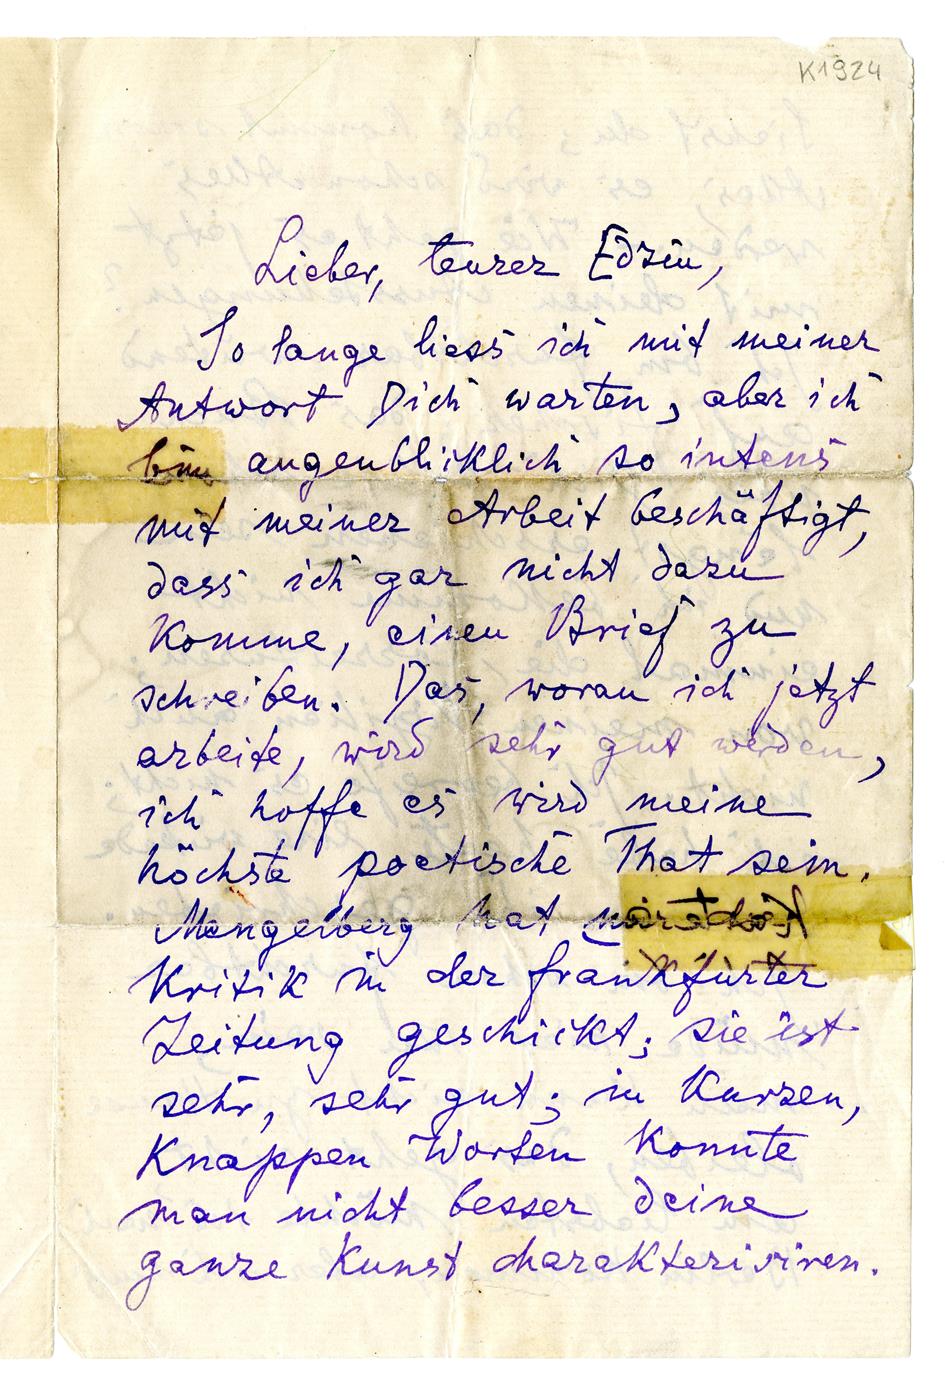 K1924
Lieber, teurer Edzin,
So lange liess ich mit meiner
Antwort Dich warten, aber ich
bin augenblicklich so intens
mit meiner Arbeit beschäftigt,
dass ich gar nicht dazu
komme, einen Brief zu
schreiben. Das, woran ich jetzt
arbeite, wird sehr gut werden,
ich hoffe es wird meine
höchste poetische That sein.
Mengelberg hat
Kritik in der frankfurter
Zeitung geschickt; sie ist
sehr, sehr gut; in Kurzen,
Knappen Worten konnte
man nicht besser deine
ganze Kunst charakterisiren.